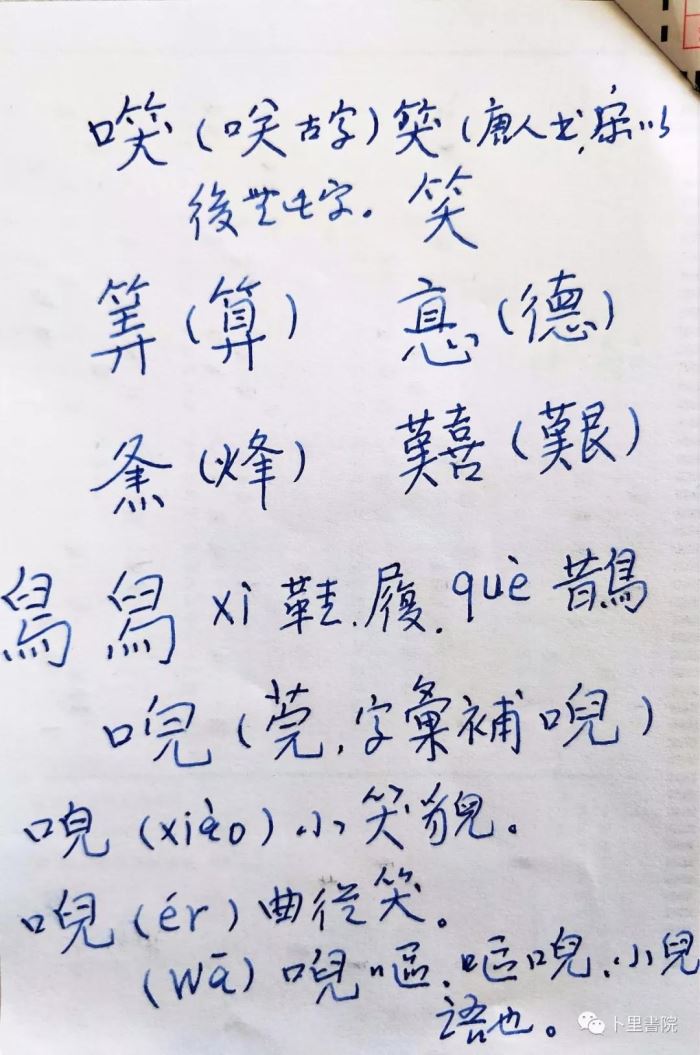 㗛（咲古字）笑（唐人书，宋以
後世无字。笑
筭（算） 悳（德）
（烽） 囏（艱）
舄 舄 xì 鞋.履. què 鵲
唲（莞，字彙補唲）
㒵（xiào）小笑貌。
唲（ér）曲從笑。
（Wā）唲嘔.嘔唲.小兒
語也。
卜里書院